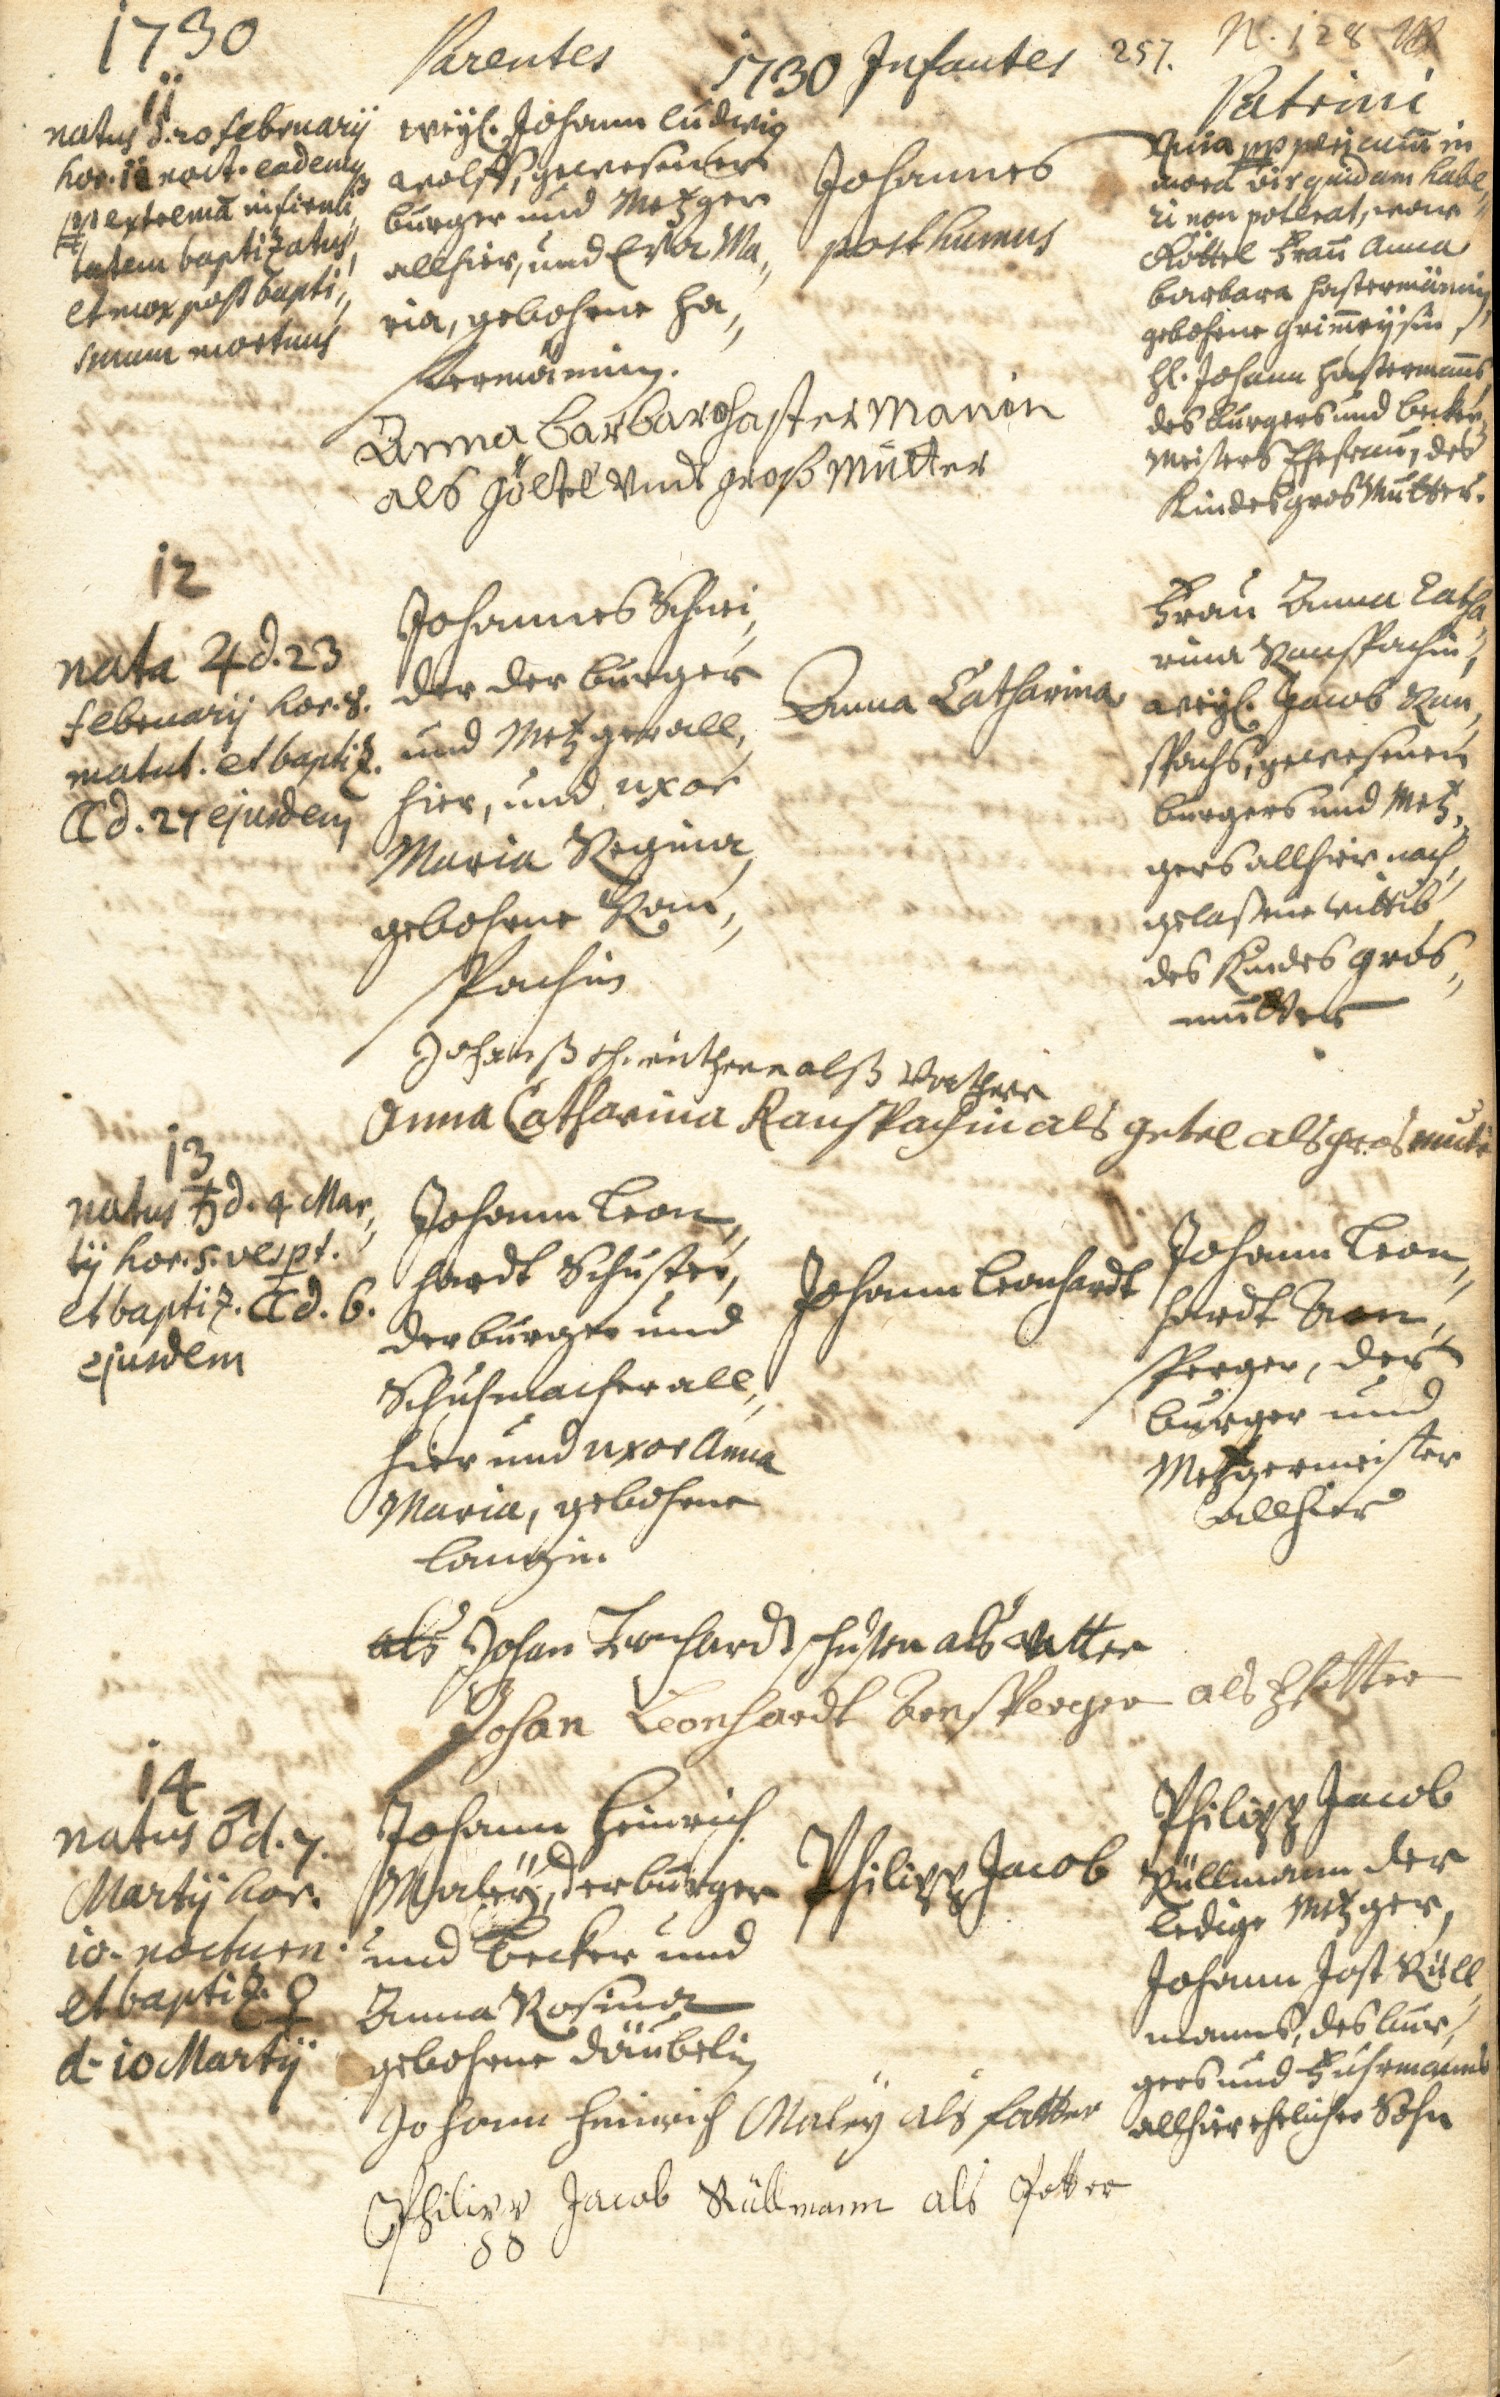 1730
Parentes
1730 Infantes
257.
N. 128
Patrini
11
natus d. 20 february
hor. 11 noct. eadem
pp extremā infirmi„
tatem baptizatus,
et mox post bapti„
smum mortuus
weyl. Johann Ludwig
Wolff, gewesener
burger und Metzger
allhier, und Eva Ma„
ria, gebohrne Ha„
stermännin.
Johannes
posthumus
Quia pp periculum in
mora vix quidam habe„
ri non poterat, war
Göttel Frau Anna
Barbara Hastermännin,
gebohrne
Hl. Johann Hastermanns
des burgers und becker„
meisters Ehefrau, des
Kindes grosmutter.
Anna Barbara hastermanin
als göltel vnd groß mutter
12
nata ♃ d. 23
february hor. 8.
matut. et baptiz.
☾ d. 27 ejusdem
Johannes Schnei„
der der burger
und Metzger all„
hier, und uxor
Maria Regina,
gebohrne Ran„
spachin
Anna Catharina
Frau Anna Catha„
rina Ranspachin,
weyl. Jacob Ran„
spachs, gewesenen
burgers und Metz„
gers allhier nach„
gelaßene wittib
des Kindes gros„
mutter
alß Vatther
Anna Catharina Ranspachin als getel als gros mute
13
natus ♄ d. 4 Mar„
tij hor. 5. vespt.
et baptiz. ☾ d. 6.
ejusdem
Johann Leon„
hardt Schuster,
der burger und
Schuhmacher all„
hier und uxor Anna
Maria, gebohrne
Langin.
Johann Leonhardt
Johann Leon„
hardt Arn„
sperger, der
burger und
Metzgermeister
allhier
als Johan Leonhardt schuster als vatter
Johan Leonhardt Arnsperger als Pfetter
14
natus ♂ d. 7.
Martij hor.
10. nocturn.
et baptiz. ♀
d. 10 Martij
Johann Heinrich
Maley, der burger
und Becker und
Anna Rosina
gebohrne Däubelin
Philipp Jacob
Philipp Jacob
Rüllmann der
ledige Metzger,
Johann Jost Rüll„
manns, des bur„
gers und Fuhrmanns
allhier ehelicher Sohn
Johann Heinrich Maley als fatter
Philipp Jacob Rüllmann als Petter